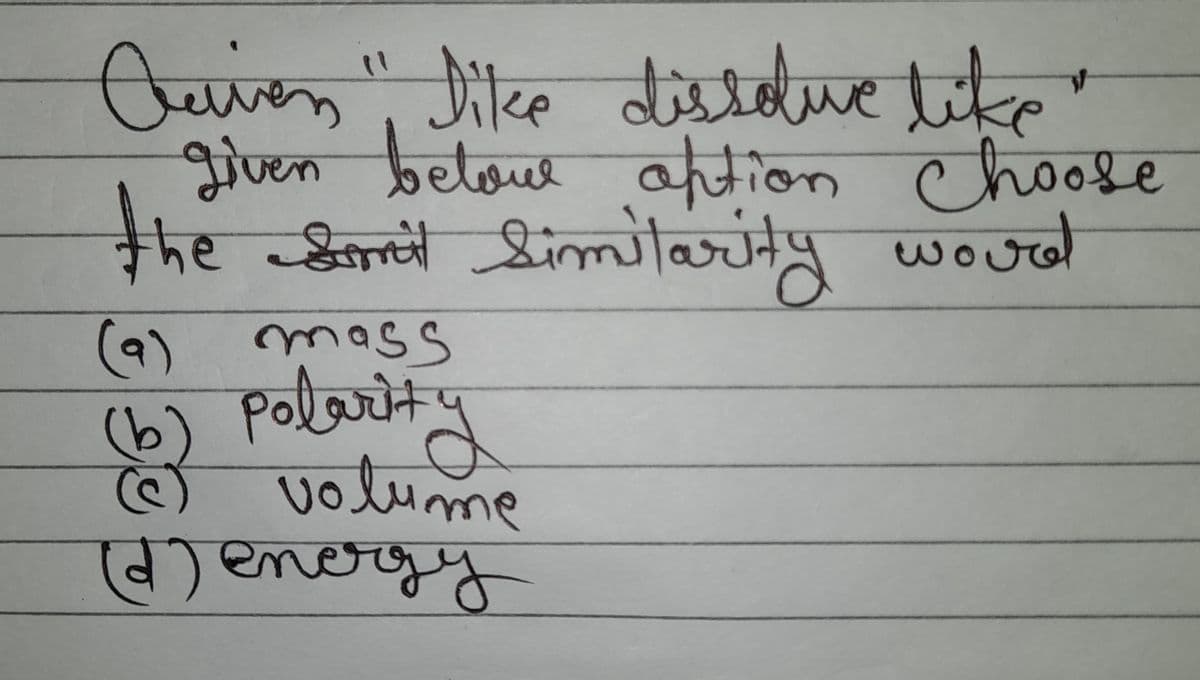 Queives "Dike dissolwe like"
given belowe option choose
the Somit Similarity word
(a) mass
(b) polarity
(c) volume
(d) energy